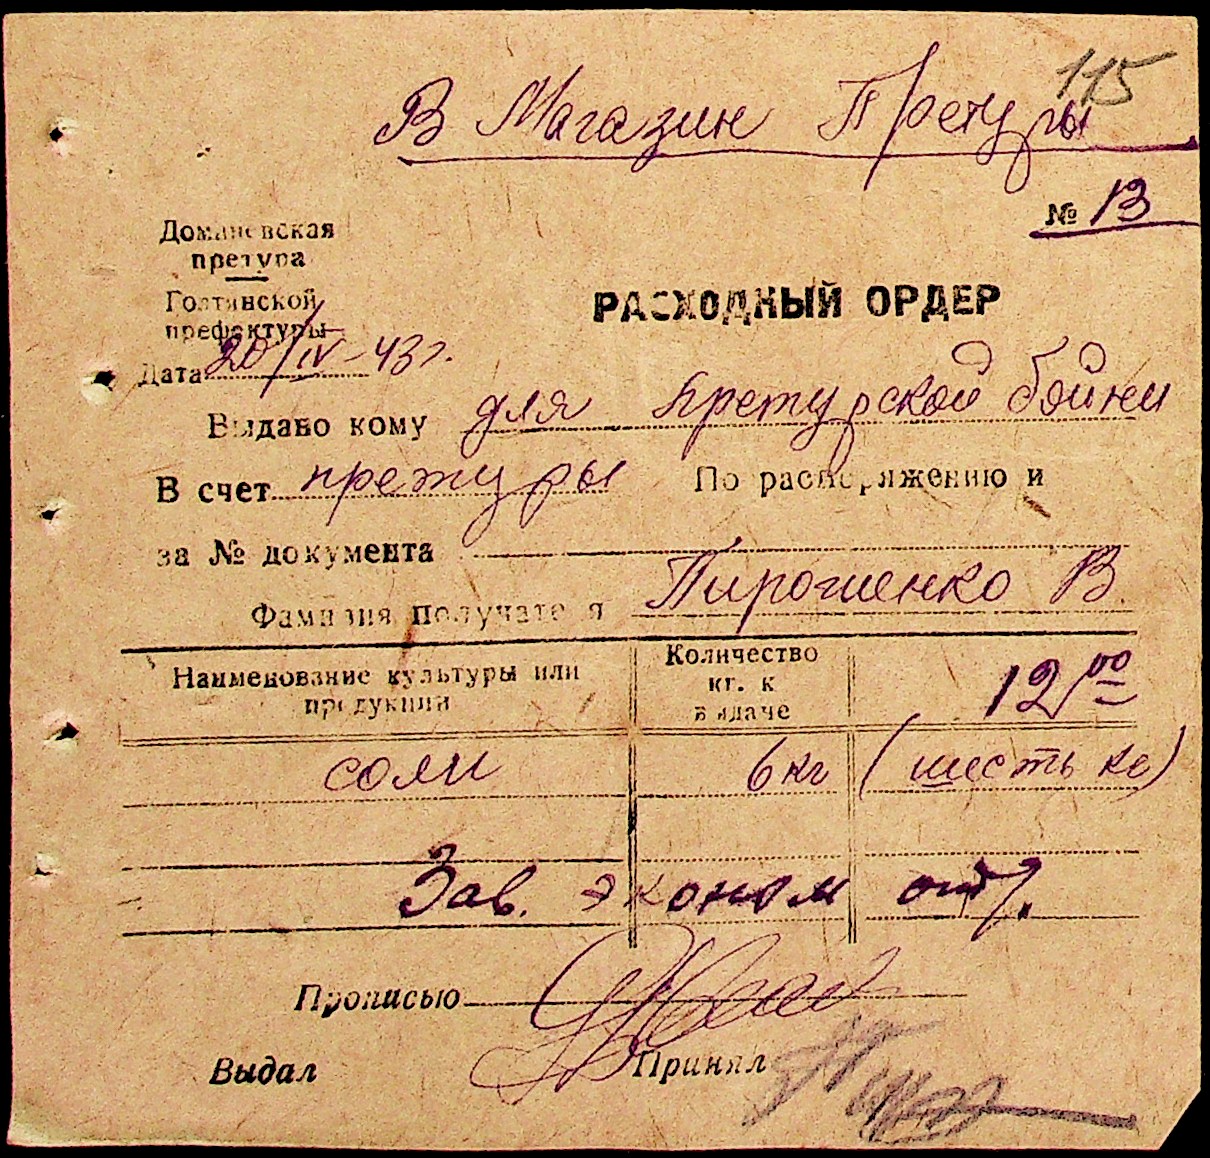 115
В Магазин Претуры
№ 13
Доманевская
претура
Голтянской
префектуры
РАСХОДНЫЙ ОРДЕР
Дата 20/IV-43г.
Выдано кому для претурской бойни
В счет претуры По распоряжению и
за № документа
Фамилия получателя Пирогиенко В.
Наименование культуры или
продукции
Количество
кг. к
выдаче
12 00
соли 6 кг (шесть кг)
Зав. эконом отд.
Прописью
Выдал Принял